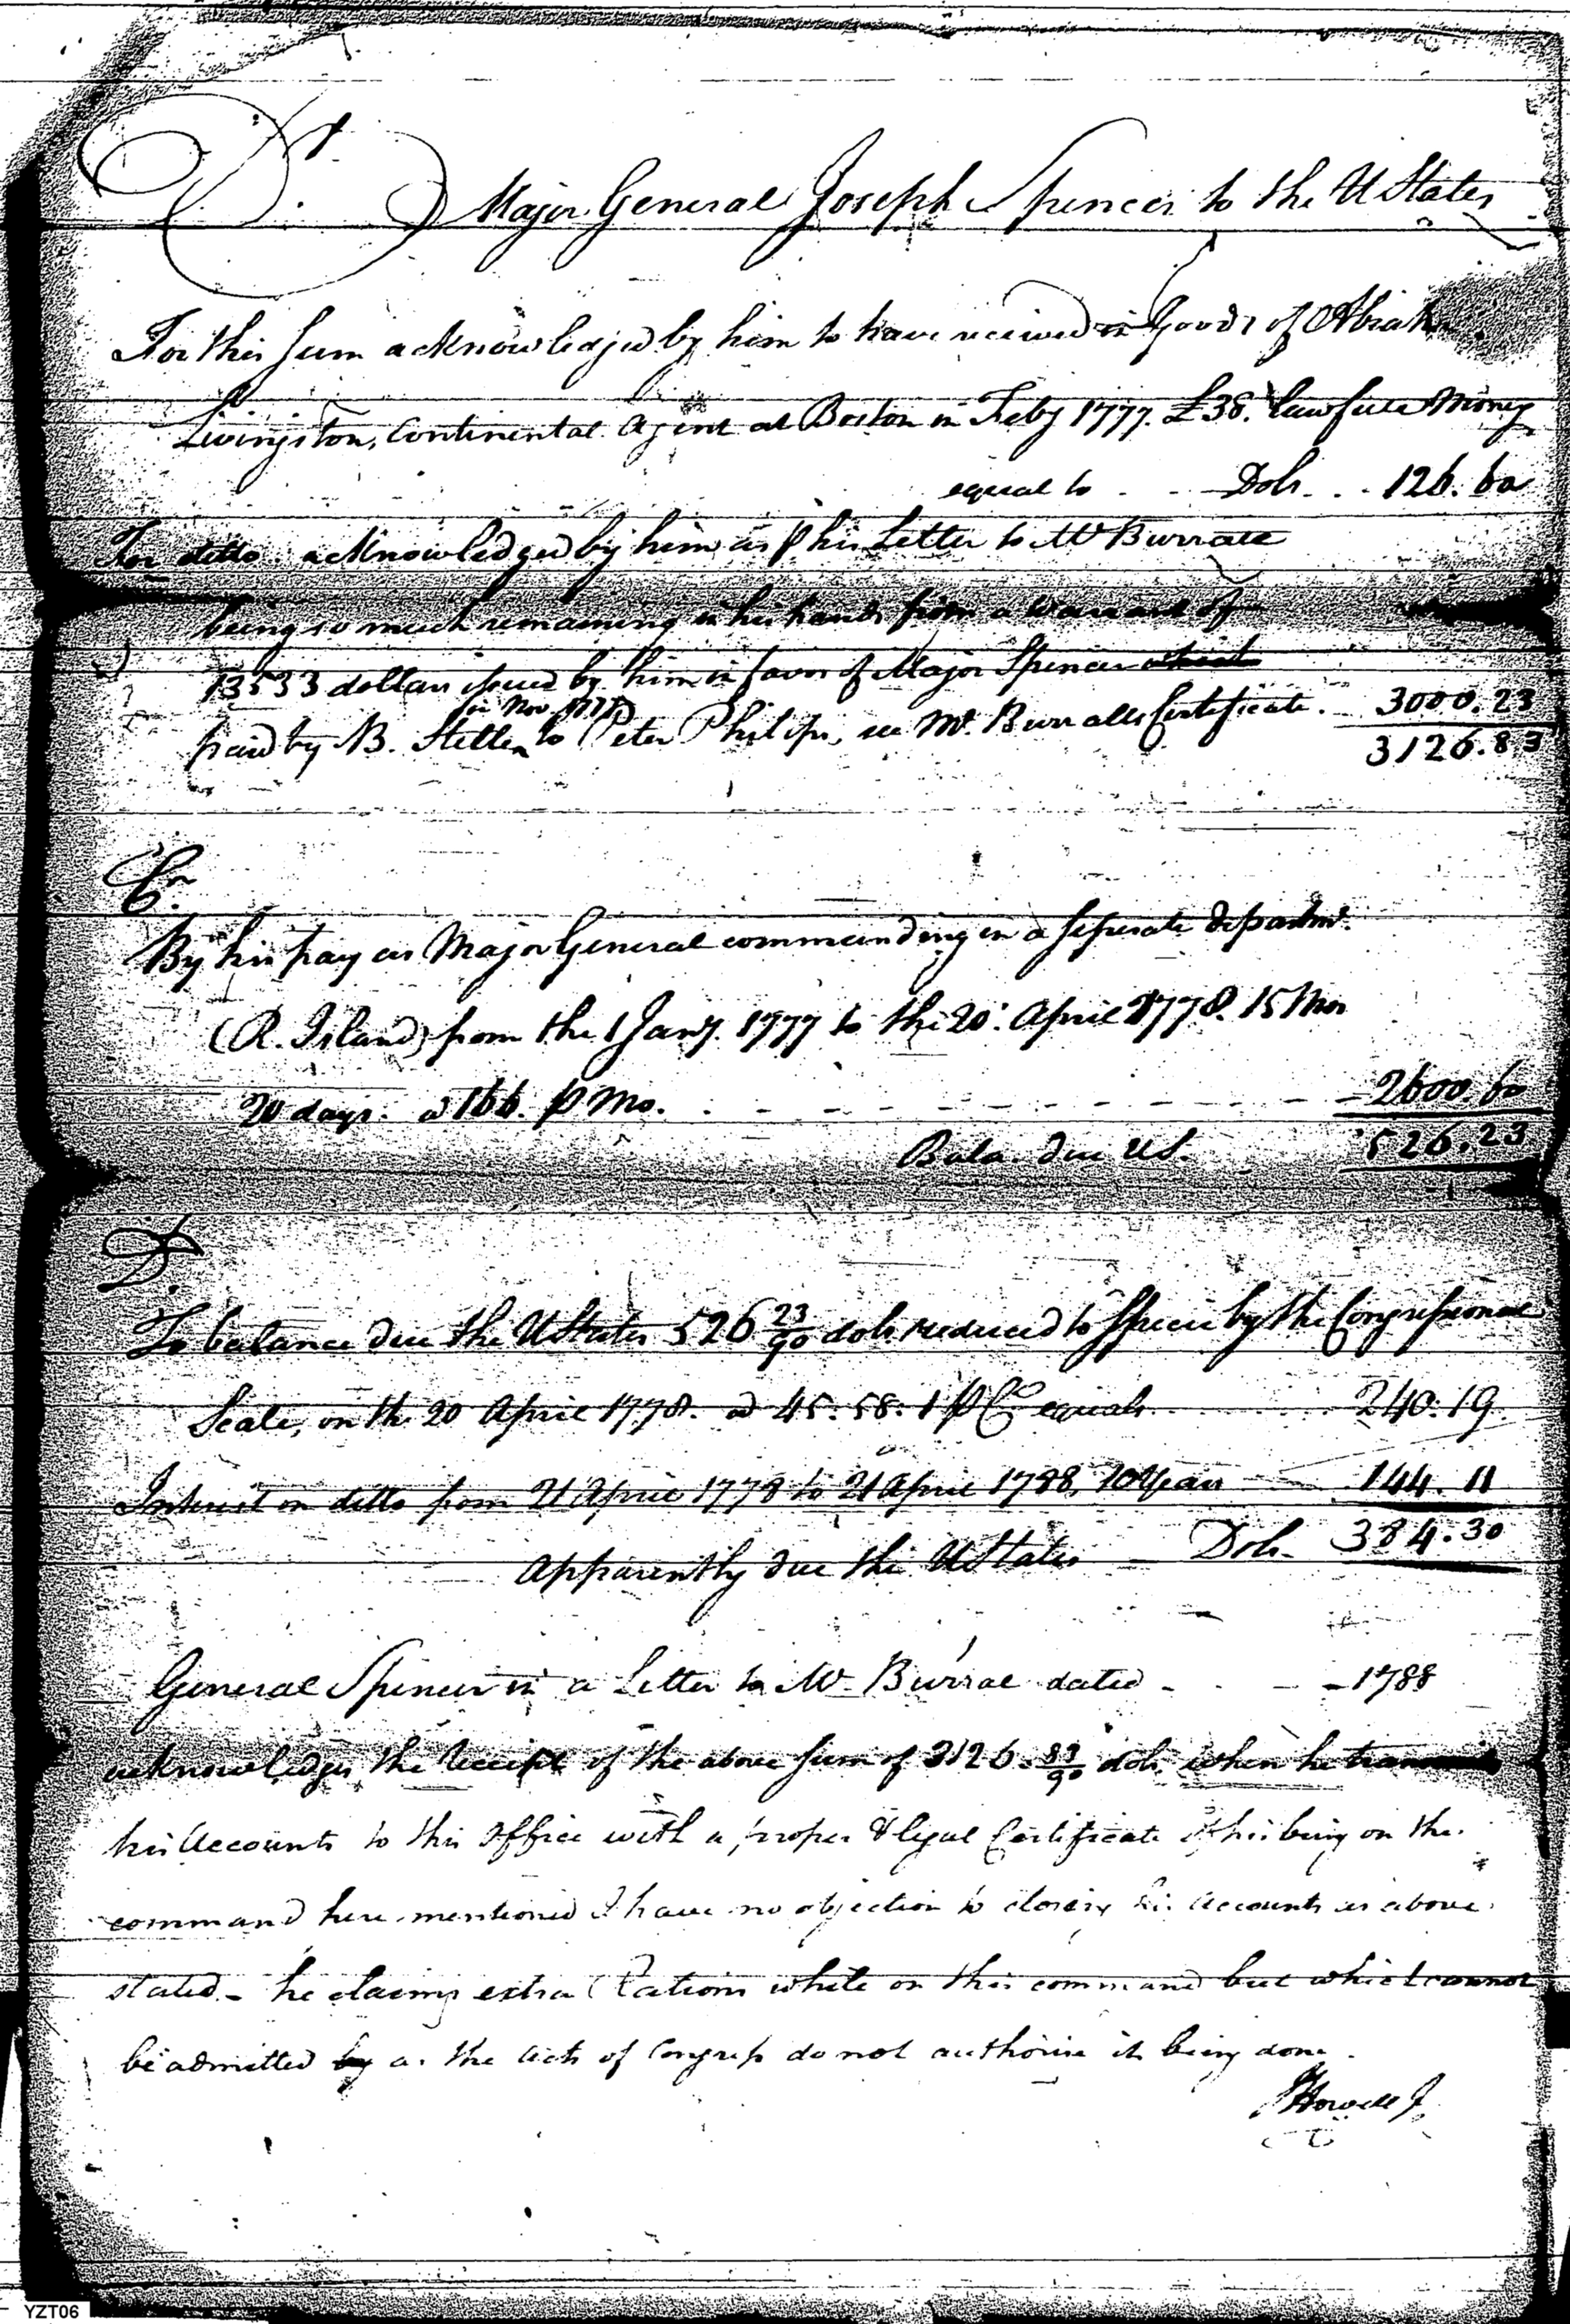 Dr. Major General Joseph Spencer to the U States
For this sum acknowledged by him to have received in Goods of Abiah
Livingston, Continental Agent at Boston in Feby 1777. £38. lawfull Money
equal to - - Dols. . . 126. 60
For ditto acknowledged by him as p his Letter to Mr Burrall
being so much remaining in his hands from a warrant of
13533 dollars issued by him in favor of Major Spencer
in Nov. 1777
paid by B. Stelle to Peter Philips, see Mr. Burralls Certificate. 3000. 23
3126. 83
Cr.
By his pay as Major General commanding in a seperate departmt.
(R. Island) from the 1 Jany. 1777 to the 20. April 1778. 15 Mos
20 days. @ 166. p Mo. - - - - - - - - - 2600 60
Bala. due US. 526. 23
Dr.
To balance due the U States 526 23/90 dols. reduced to specie by the Congressional
Scale, on the 20 April 1778. @ 45. 58. 1 p Ct equals 240. 19
Interest on ditto from 21 April 1778 to 21 April 1788, 10 Years 144. 11
Apparently due the U States Dols. 384. 30
General Spencer in a Letter to Mr Burral dated - - - 1788
acknowledges the Receipt of the above sum of 3126. 83/90 dols. when he
his Accounts to this Office with a proper & legal Certificate of his being on the
command here mentioned I have no objection to closing his Accounts as above
stated - he claims extra Rations while on this command but which cannot
be admitted by as the Acts of Congress do not authorise its being done.
J Howell J
YZT06